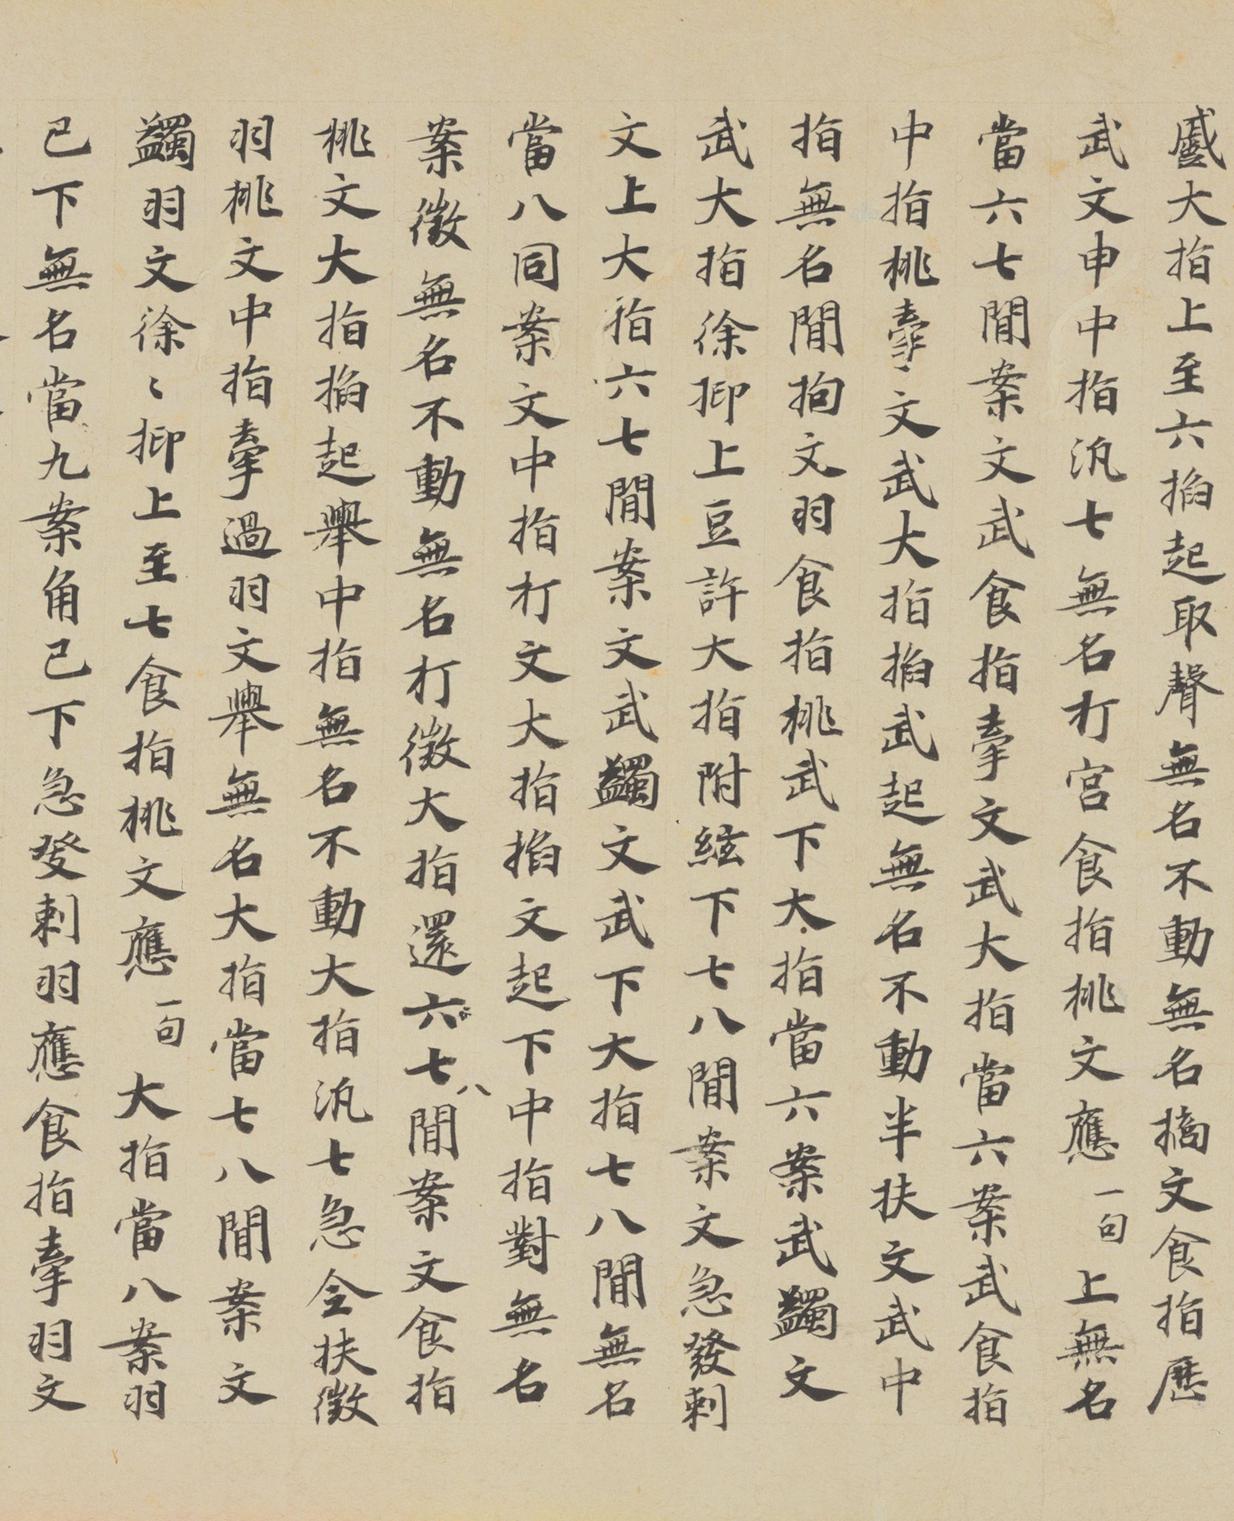 蹙大指上至六掐起取聲無名不動無名擿文食指歷
武文申中指汎七無名打宮食指桃文應一句上無名
當六七間案文武食指牽文武大指當六案武食指
中指桃牽文武大指掐武起無名不動半扶文武中
指無名間拘文羽食指桃武下大指當六案武蠲文
武大指徐抑上豆許大指附絃下七八間案文急發刺
文上大指六七間案文武蠲文武下大指七八間無名
當八同案文中指打文大指掐文起下中指對無名
案徵無名不動無名打徵大指還六七八間案文食指
桃文大指掐起舉中指無名不動大指汎七急全扶徵
羽桃文中指牽過羽文舉無名大指當七八間案文
蠲羽文徐〻抑上至七食指桃文應一句大指當八案羽
已下無名當九案角已下急發刺羽應食指牽羽文